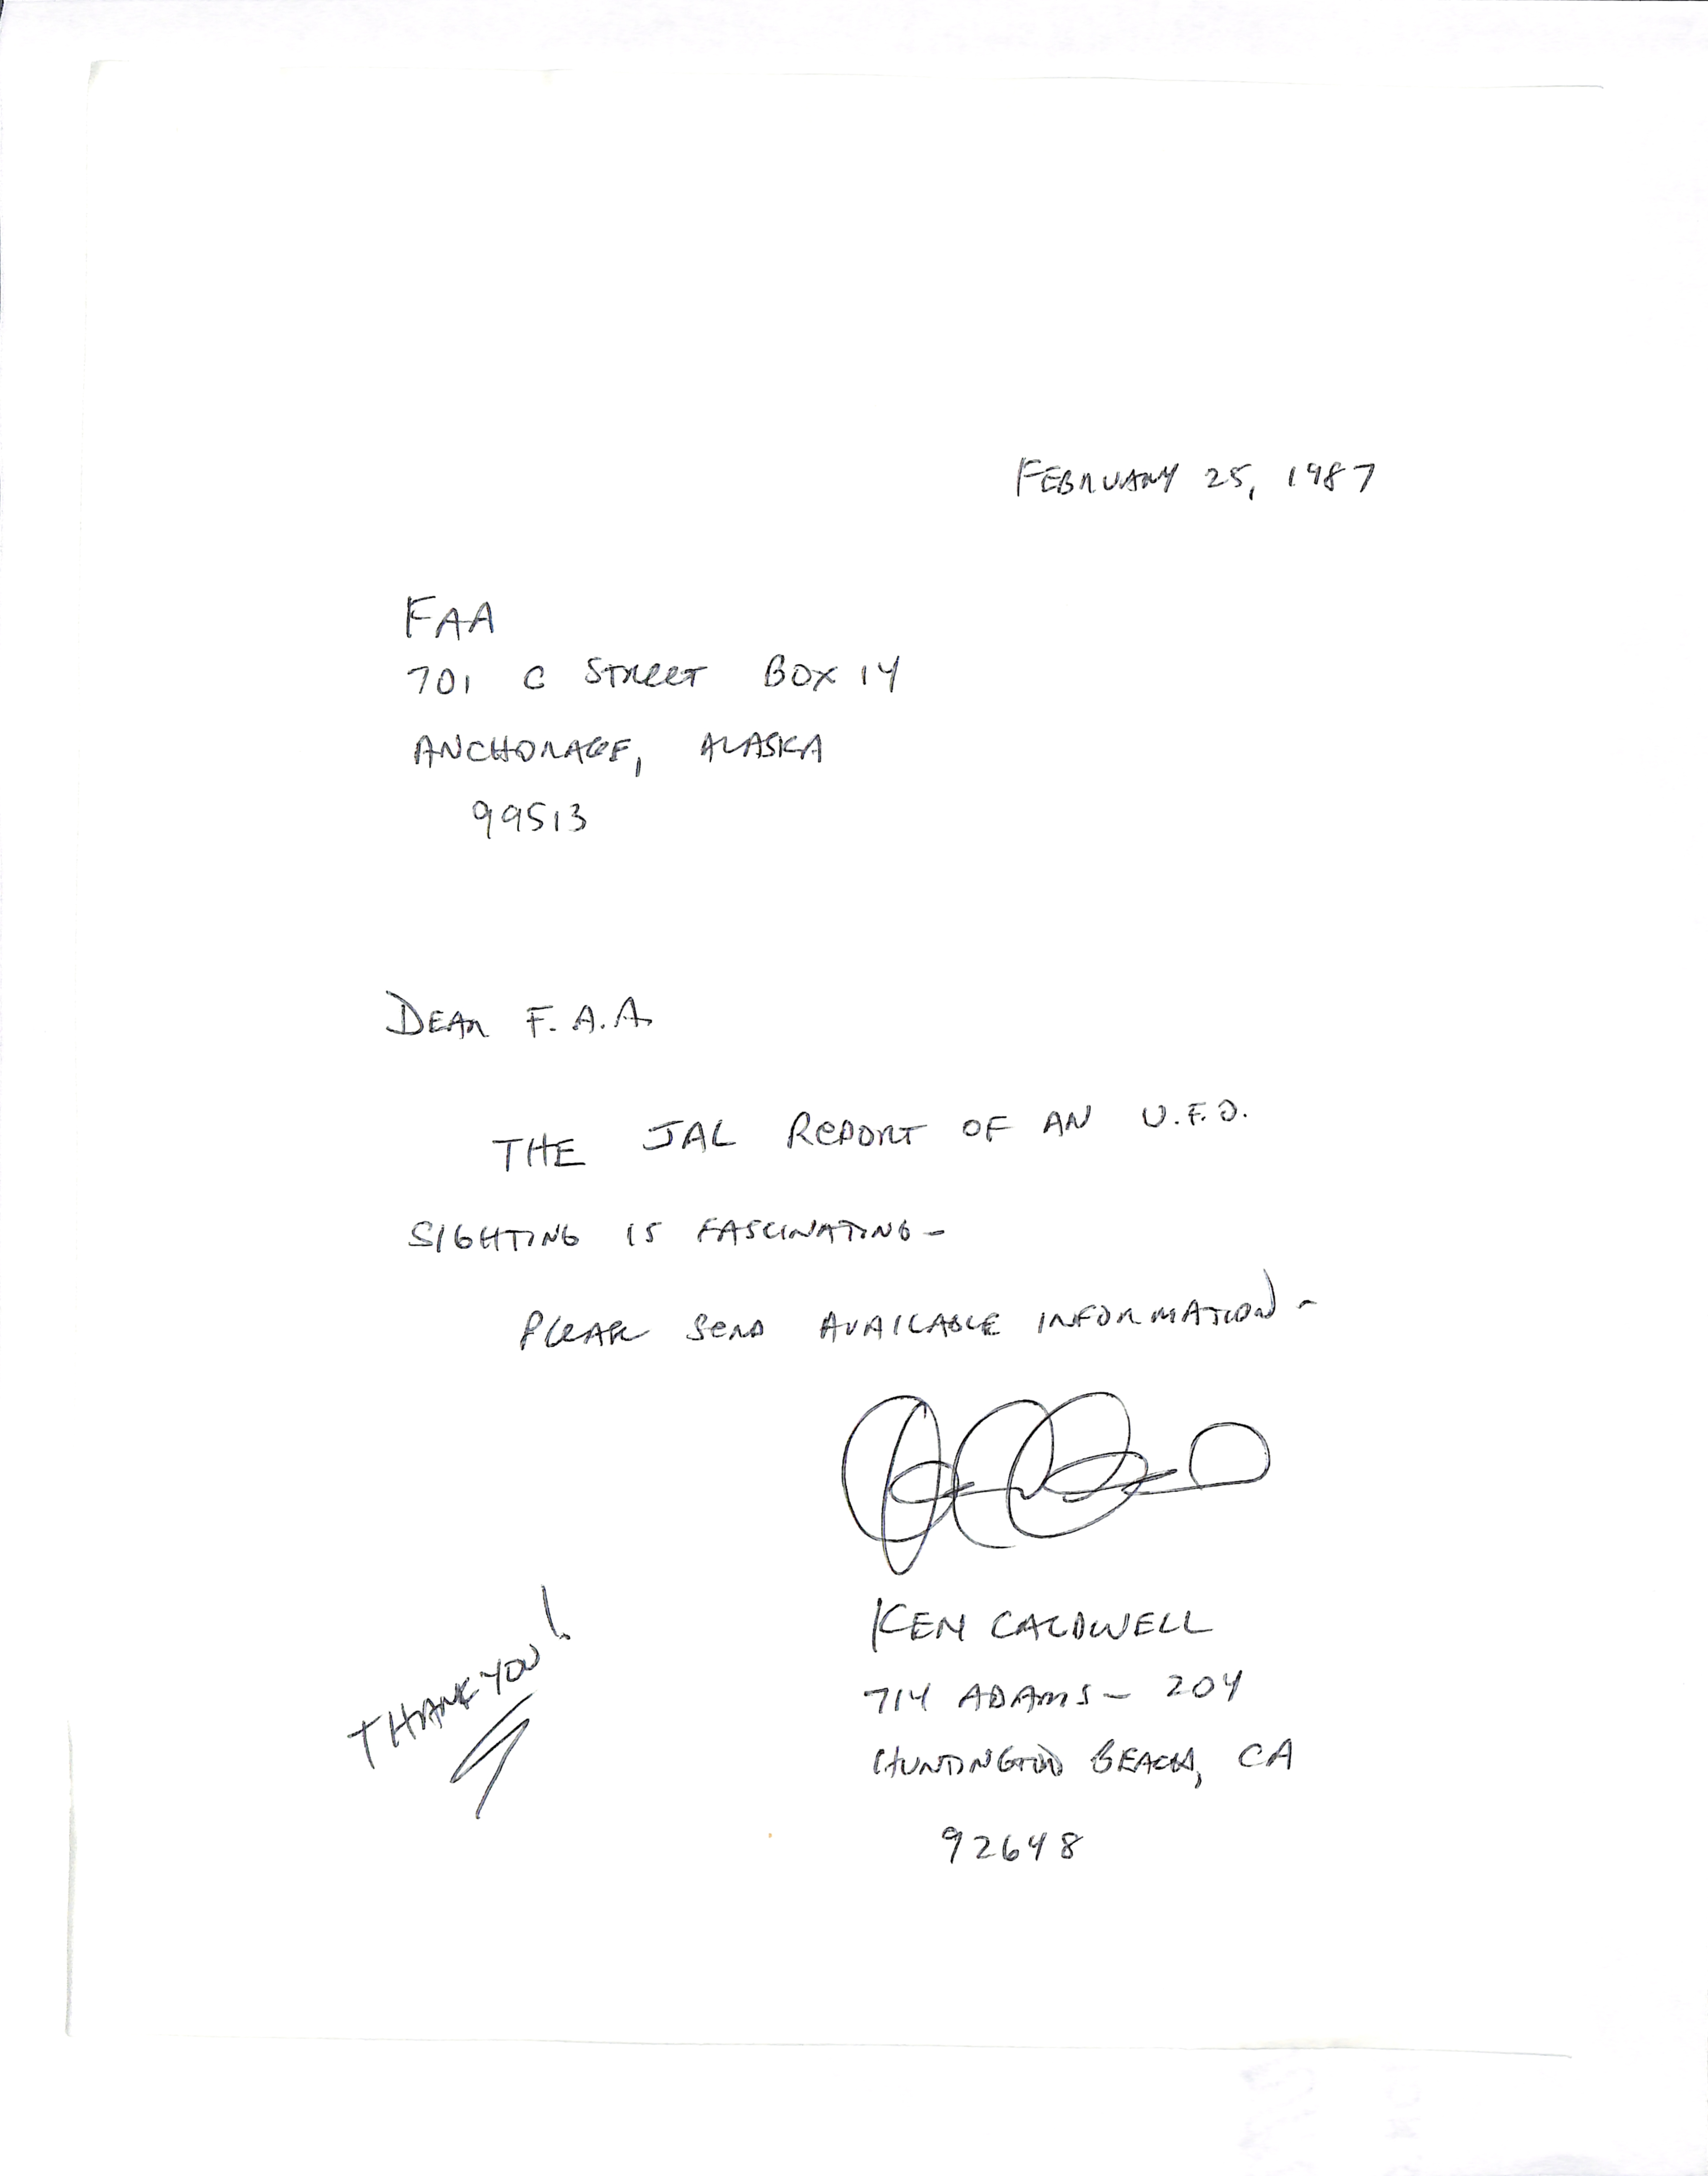 FEBRUARY 25, 1987
FAA
701 C STREET BOX 14
ANCHORAGE, ALASKA
99513
DEAR F.A.A.
THE JAL REPORT OF AN U.F.O.
SIGHTING IS FASCINATING-
PLEASE SEND AVAILABLE INFORMATION-
KEN CALDWELL
714 ADAMS- 204
HUNTINGTON BEACH, CA
92648
THANK YOU!